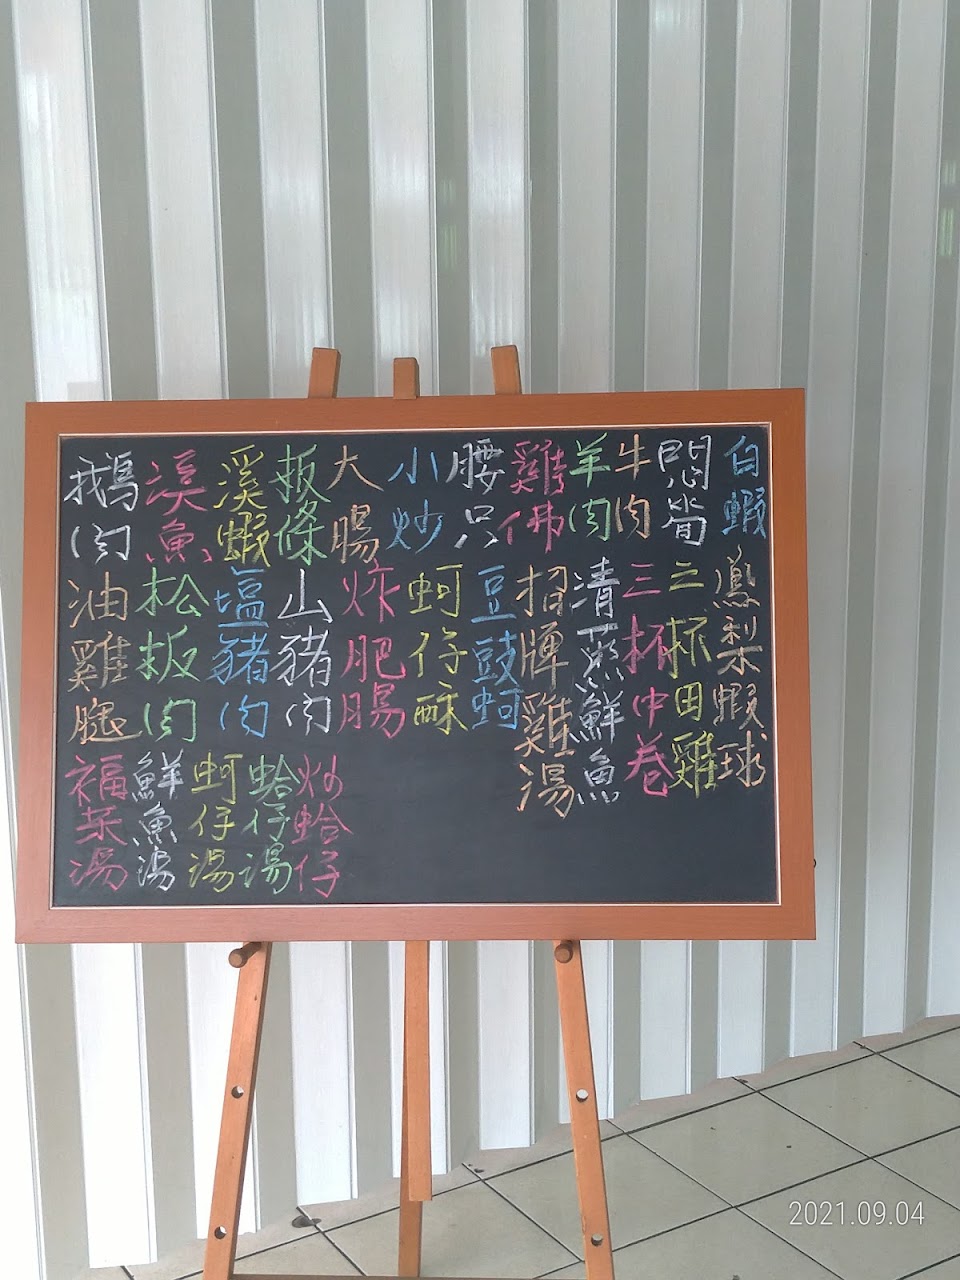 鵝肉
溪魚
溪蝦
扳條
大腸
小炒
腰只
雞佛
羊肉
牛肉
悶筍
白蝦
油雞腿
松板肉
塩豬肉
山豬肉
炸肥腸
蚵仔酥
豆豉蚵
招牌雞湯
清蒸鮮魚
三杯中卷
三杯田雞
鳳梨蝦球
福菜湯
鮮魚湯
蚵仔湯
蛤仔湯
炒蛤仔
2021.09.04